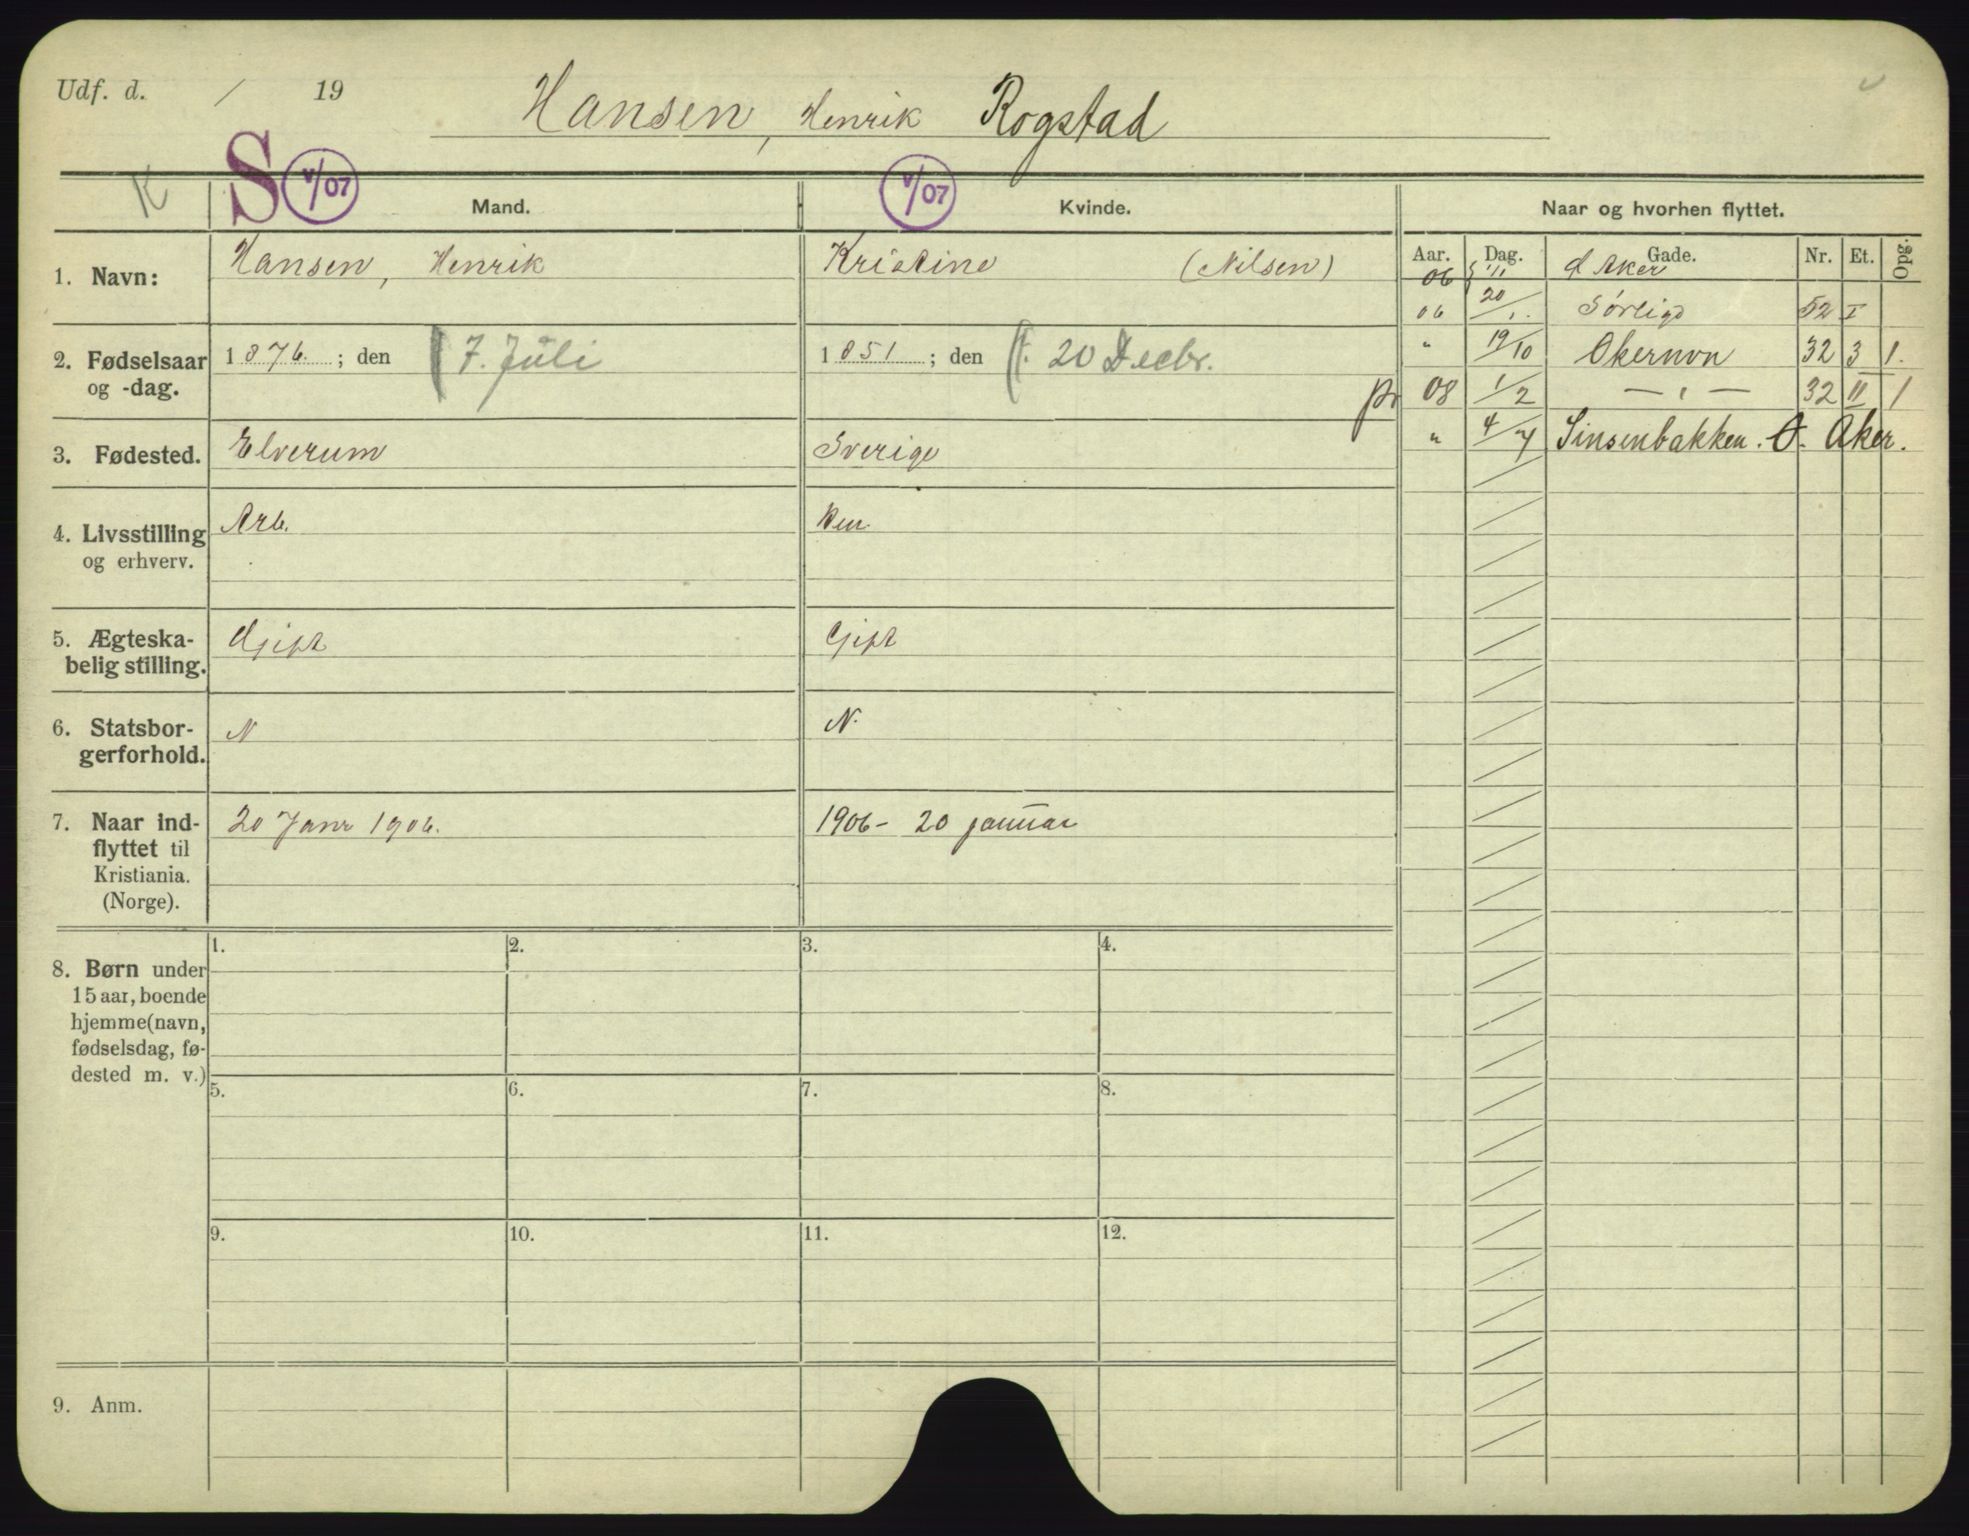 Udf. d. / 19
Hansen, Henrik Rogstad
K S V/07 Mand. V/07 Kvinde. Naar og hvorhen flyttet.
Aar. Dag. Gade. Nr. Et. Opg.
1. Navn: Hansen, Henrik Kristine (Nilsen)
06 1/11 Aker
06 20/1. Sörligt 52 I
" 19/10 Økernvn 32 3 1.
08 1/2 — " — 32 II 1
" 4/7 Sinsenbakken. Ø. Aker.
2. Fødselsaar og -dag.
1876. ; den 7. Juli
1851 ; den 20 Decbr.
3. Fødested. Elverum Sverige
4. Livsstilling og erhverv. Arb.
5. Ægteska-
belig stilling. Gift Gift
6. Statsbor-
gerforhold. N N.
7. Naar ind-
flyttet til
Kristiania.
(Norge).
20 Janr 1906.
1906 - 20 januar
8. Børn under
15 aar, boende
hjemme (navn,
fødselsdag, fø-
dested m. v.)
1. 2. 3. 4.
5. 6. 7. 8.
9. 10. 11. 12.
9. Anm.